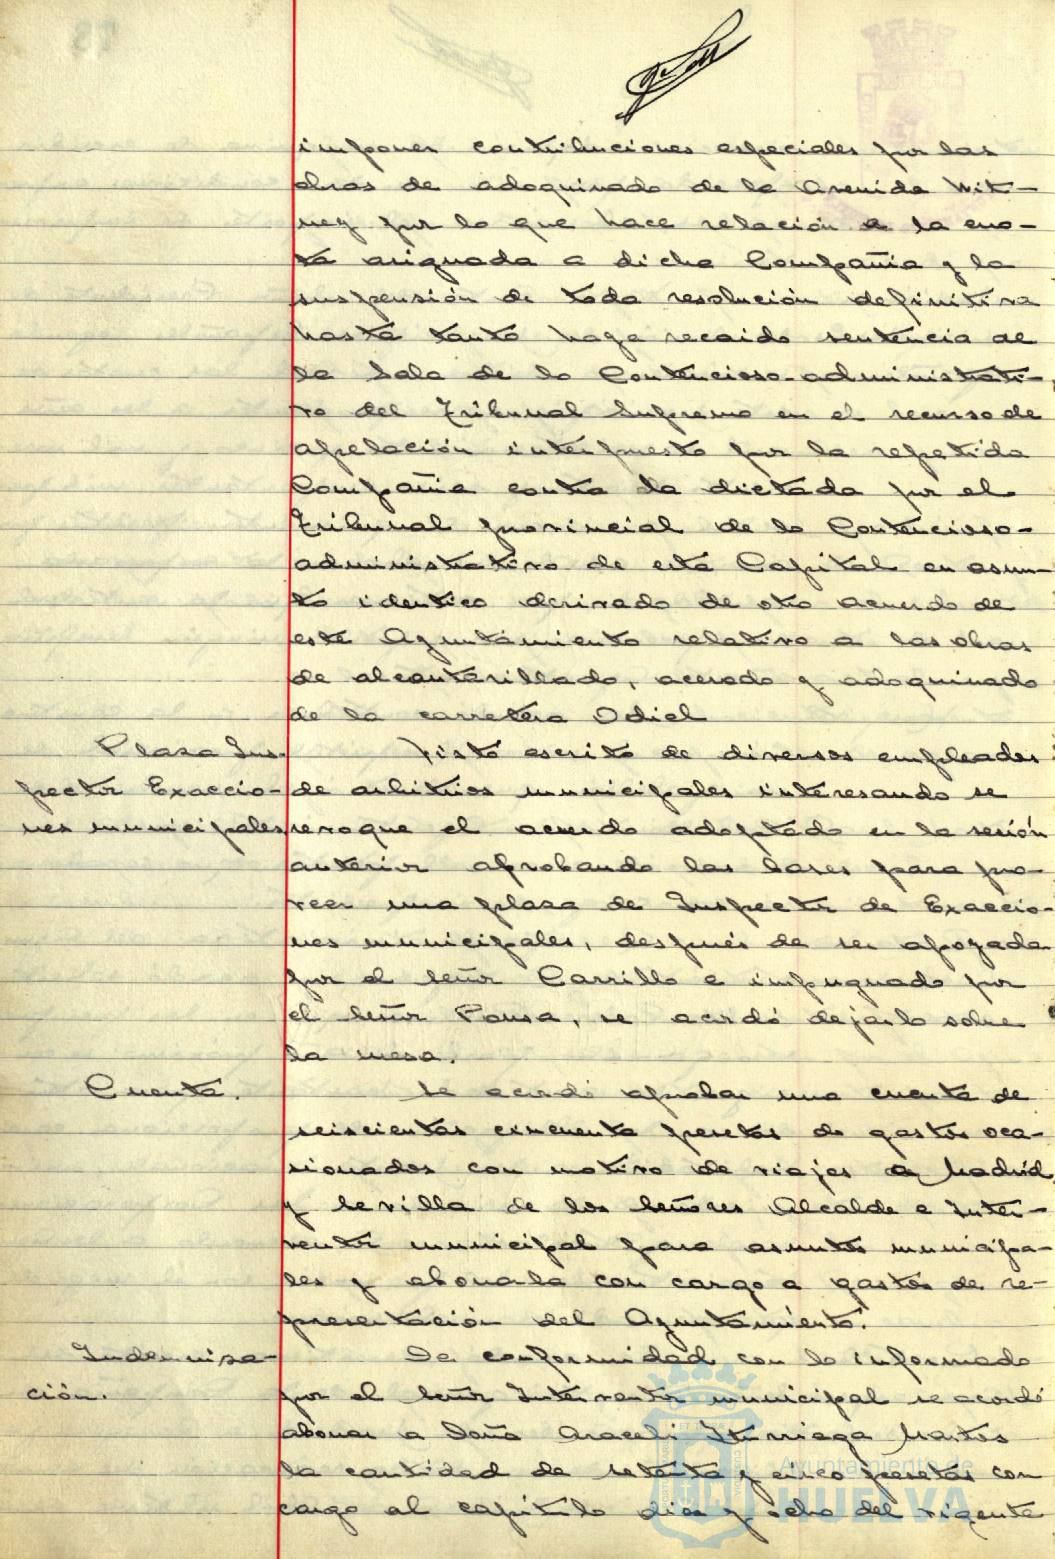 imponer contribuciones especiales por las
obras de adoquinado de la Avenida Wit-
ney por lo que hace relación a la cuo-
ta asignada a dicha Compañia y la
suspensión de toda resolución definitiva
hasta tanto haya recaido sentencia de
la Sala de lo Contencioso-administrati-
vo del Tribunal Supremo en el recurso de
apelación interpuesto por la repetida
Compañia contra la dictada por el
Tribunal provincial de lo Contencioso-
administrativo de esta Capital en asun-
to identico derivado de otro acuerdo de
este Ayuntamiento relativo a las obras
de alcantarillado, acerado y adoquinado
de la carretera Odiel
Plaza Ins-
pector Exaccio-
nes municipales
Visto escrito de diversos empleados
de arbitrios municipales interesando se
revoque el acuerdo adoptado en la sesión
anterior aprobando las bases para pro-
veer una plaza de Inspector de Exaccio-
nes municipales, después de ser apoyada
por el señor Carrillo e impugnado por
el señor Pousa, se acordó dejarlo sobre
la mesa.
Cuenta.
Se acordó aprobar una cuenta de
seiscientas cincuenta pesetas de gastos oca-
sionados con motivo de viajes a Madrid
y Sevilla de los señores Alcalde e Inter-
ventor municipal para asuntos municipa-
les y abonarla con cargo a gastos de re-
presentación del Ayuntamiento.
Indemniza-
ción.
De conformidad con lo informado
por el señor Interventor municipal se acordó
abonar a Doña Araceli Iturriaga Martos
la cantidad de setenta y cinco pesetas con
cargo al capítulo diez y ocho del vigente
Ayuntamiento de
HUELVA